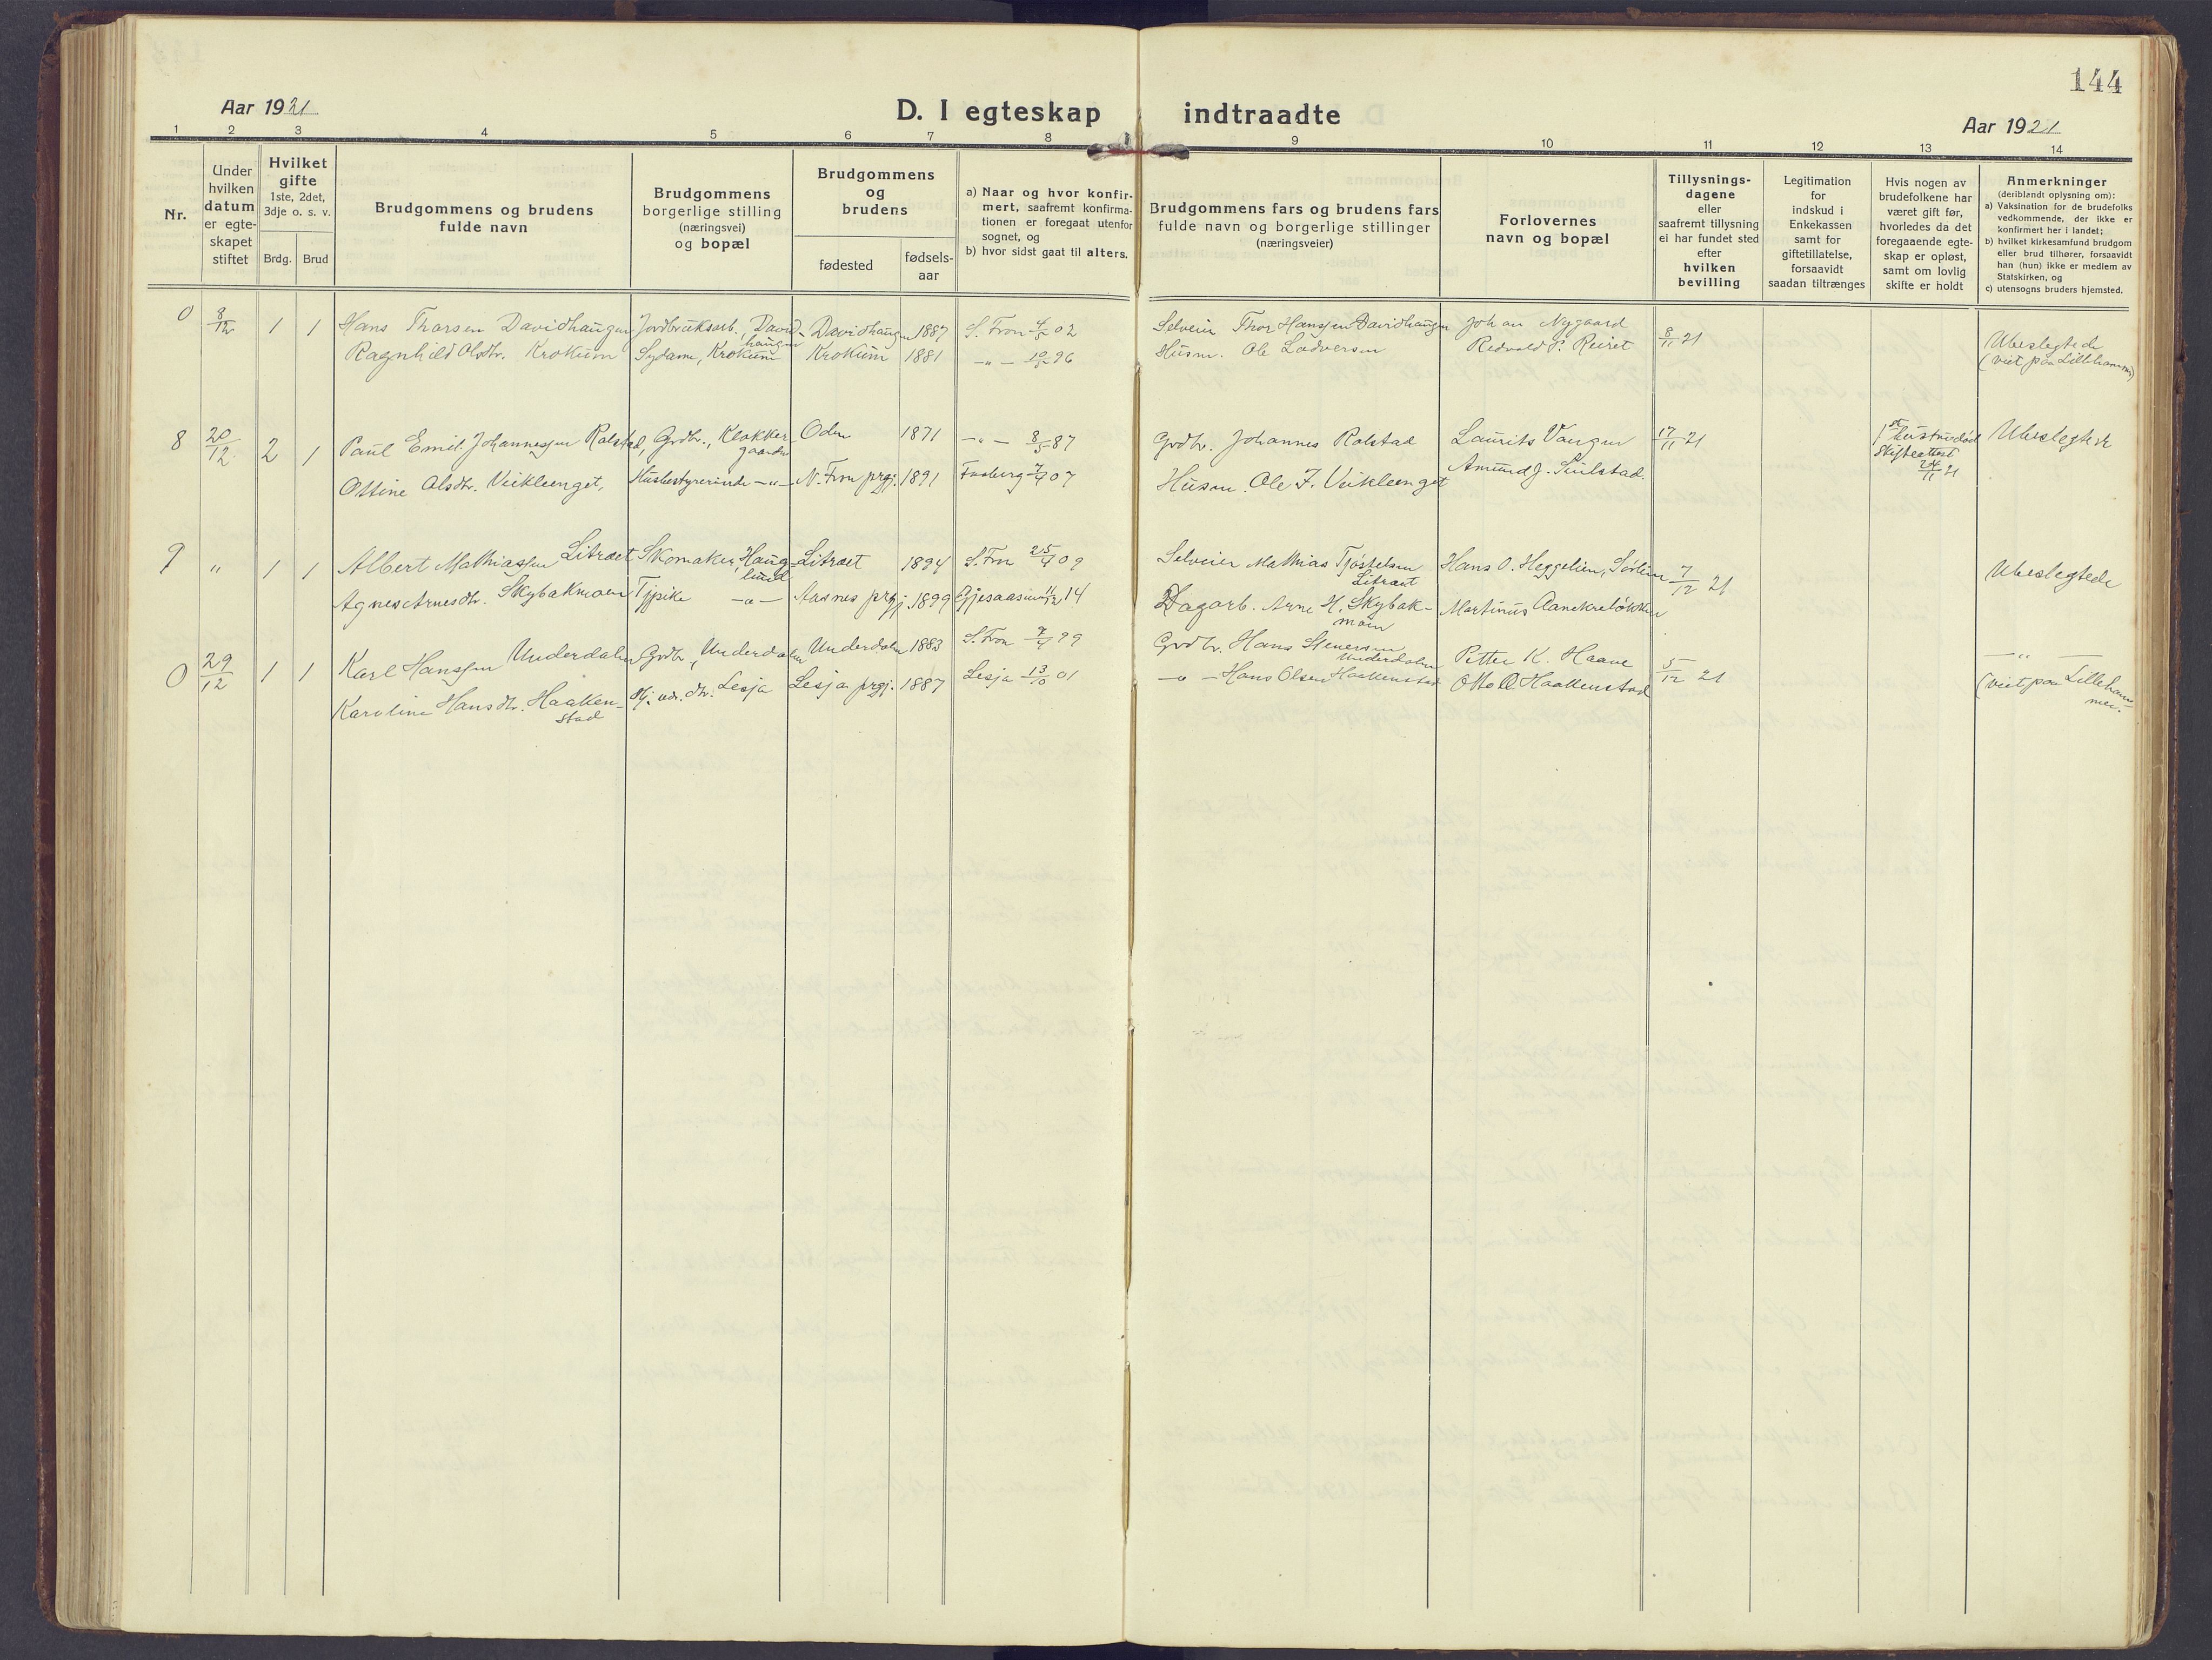 144
Aar 1921
D. I egteskap indtraadte
Aar 1921
1 2 3 4 5 6 7 8 9 10 11 12 13 14
Nr.
Under
hvilken
datum
er egte-
skapet
stiftet
Hvilket
gifte
1ste, 2det,
3dje o. s. v.
Brdg. Brud
Brudgommens og brudens
fulde navn
Brudgommens
borgerlige stilling
(næringsvei)
og bopæl
Brudgommens
og
brudens
fødested
fødsels-
aar
a) Naar og hvor konfir-
mert, saafremt konfirma-
tionen er foregaat utenfor
sognet, og
b) hvor sidst gaat til alters.
Brudgommens fars og brudens fars
fulde navn og borgerlige stillinger
(næringsveier)
Forlovernes
navn og bopæl
Tillysnings-
dagene
eller
saafremt tillysning
ei har fundet sted
efter
hvilken
bevilling
Legitimation
for
indskud i
Enkekassen
samt for
giftetillatelse,
forsaavidt
saadan tiltrænges
Hvis nogen av
brudefolkene har
været gift før,
hvorledes da det
foregaaende egte-
skap er opløst,
samt om lovlig
skifte er holdt
Anmerkninger
(deriblandt oplysning om):
a) Vaksination for de brudefolks
vedkommende, der ikke er
konfirmert her i landet;
b) hvilket kirkesamfund brudgom
eller brud tilhører, forsaavidt
han (hun) ikke er medlem av
Statskirken, og
c) utensogns bruders hjemsted.
0 8/12 1 1 Hans Thorsen Davidhaugen Jordbruksarb., David-haugen Davidhaugen 1887 S. Fron 02 Selveier Thor Hanssen Davidhaugen Johan Nygaard 8/11 21
Ragnhild Olsdtr. Krokum Sydame, Krokum Krokum 1881 -"- 96 Husm. Ole Lodversen Redvald P. Reiret Ubeslegtede
(viet paa Lillehammer)
8 20/12 2 1 Paul Emil Johannessen Rolstad, Grdbr., Klokker-gaarden Oden 1871 -"- 8/5 87 Grdbr. Johannes Rolstad Laurits Vangen 17/11 21 1st hustru død Skifteattest 24/11 21 Ubeslegtede
Oline Olsdtr. Veikleenget, Husbestyrerinde -"- N. Fron prgj. 1891 Faaberg 07 Husm. Ole F. Veikleenget Amund J. Suilstad.
9 " 1 1 Albert Mathiassen Litraet Skomaker, Haug-lund Litraet 1894 S. Fron 25/4 09 Selveier Mathias Tjøstelsen Litraet Hans O. Heggelien, Sørlien 7/12 21 Ubeslegtede
Agnes Arnesdtr. Skybakmoen Tjpike -"- Aasnes prgj. 1899 Gjesaasen 14 Dagarb. Arne H. Skybak-moen Martinus Aanekreløkken
0 29/12 1 1 Karl Hanssen Underdalen Grdbr., Underdalen Underdalen 1883 S. Fron 99 Grdbr. Hans Stenersen Underdalen Petter K. Haave 5/12 21 -"-
Karoline Hansdtr. Haaken-stad Hj. vær. dtr. Lesja Lesja prgj. 1887 Lesja 13/10 01 -"- Hans Olsen Haakenstad Otto O. Haakenstad (viet paa Lillehammer.